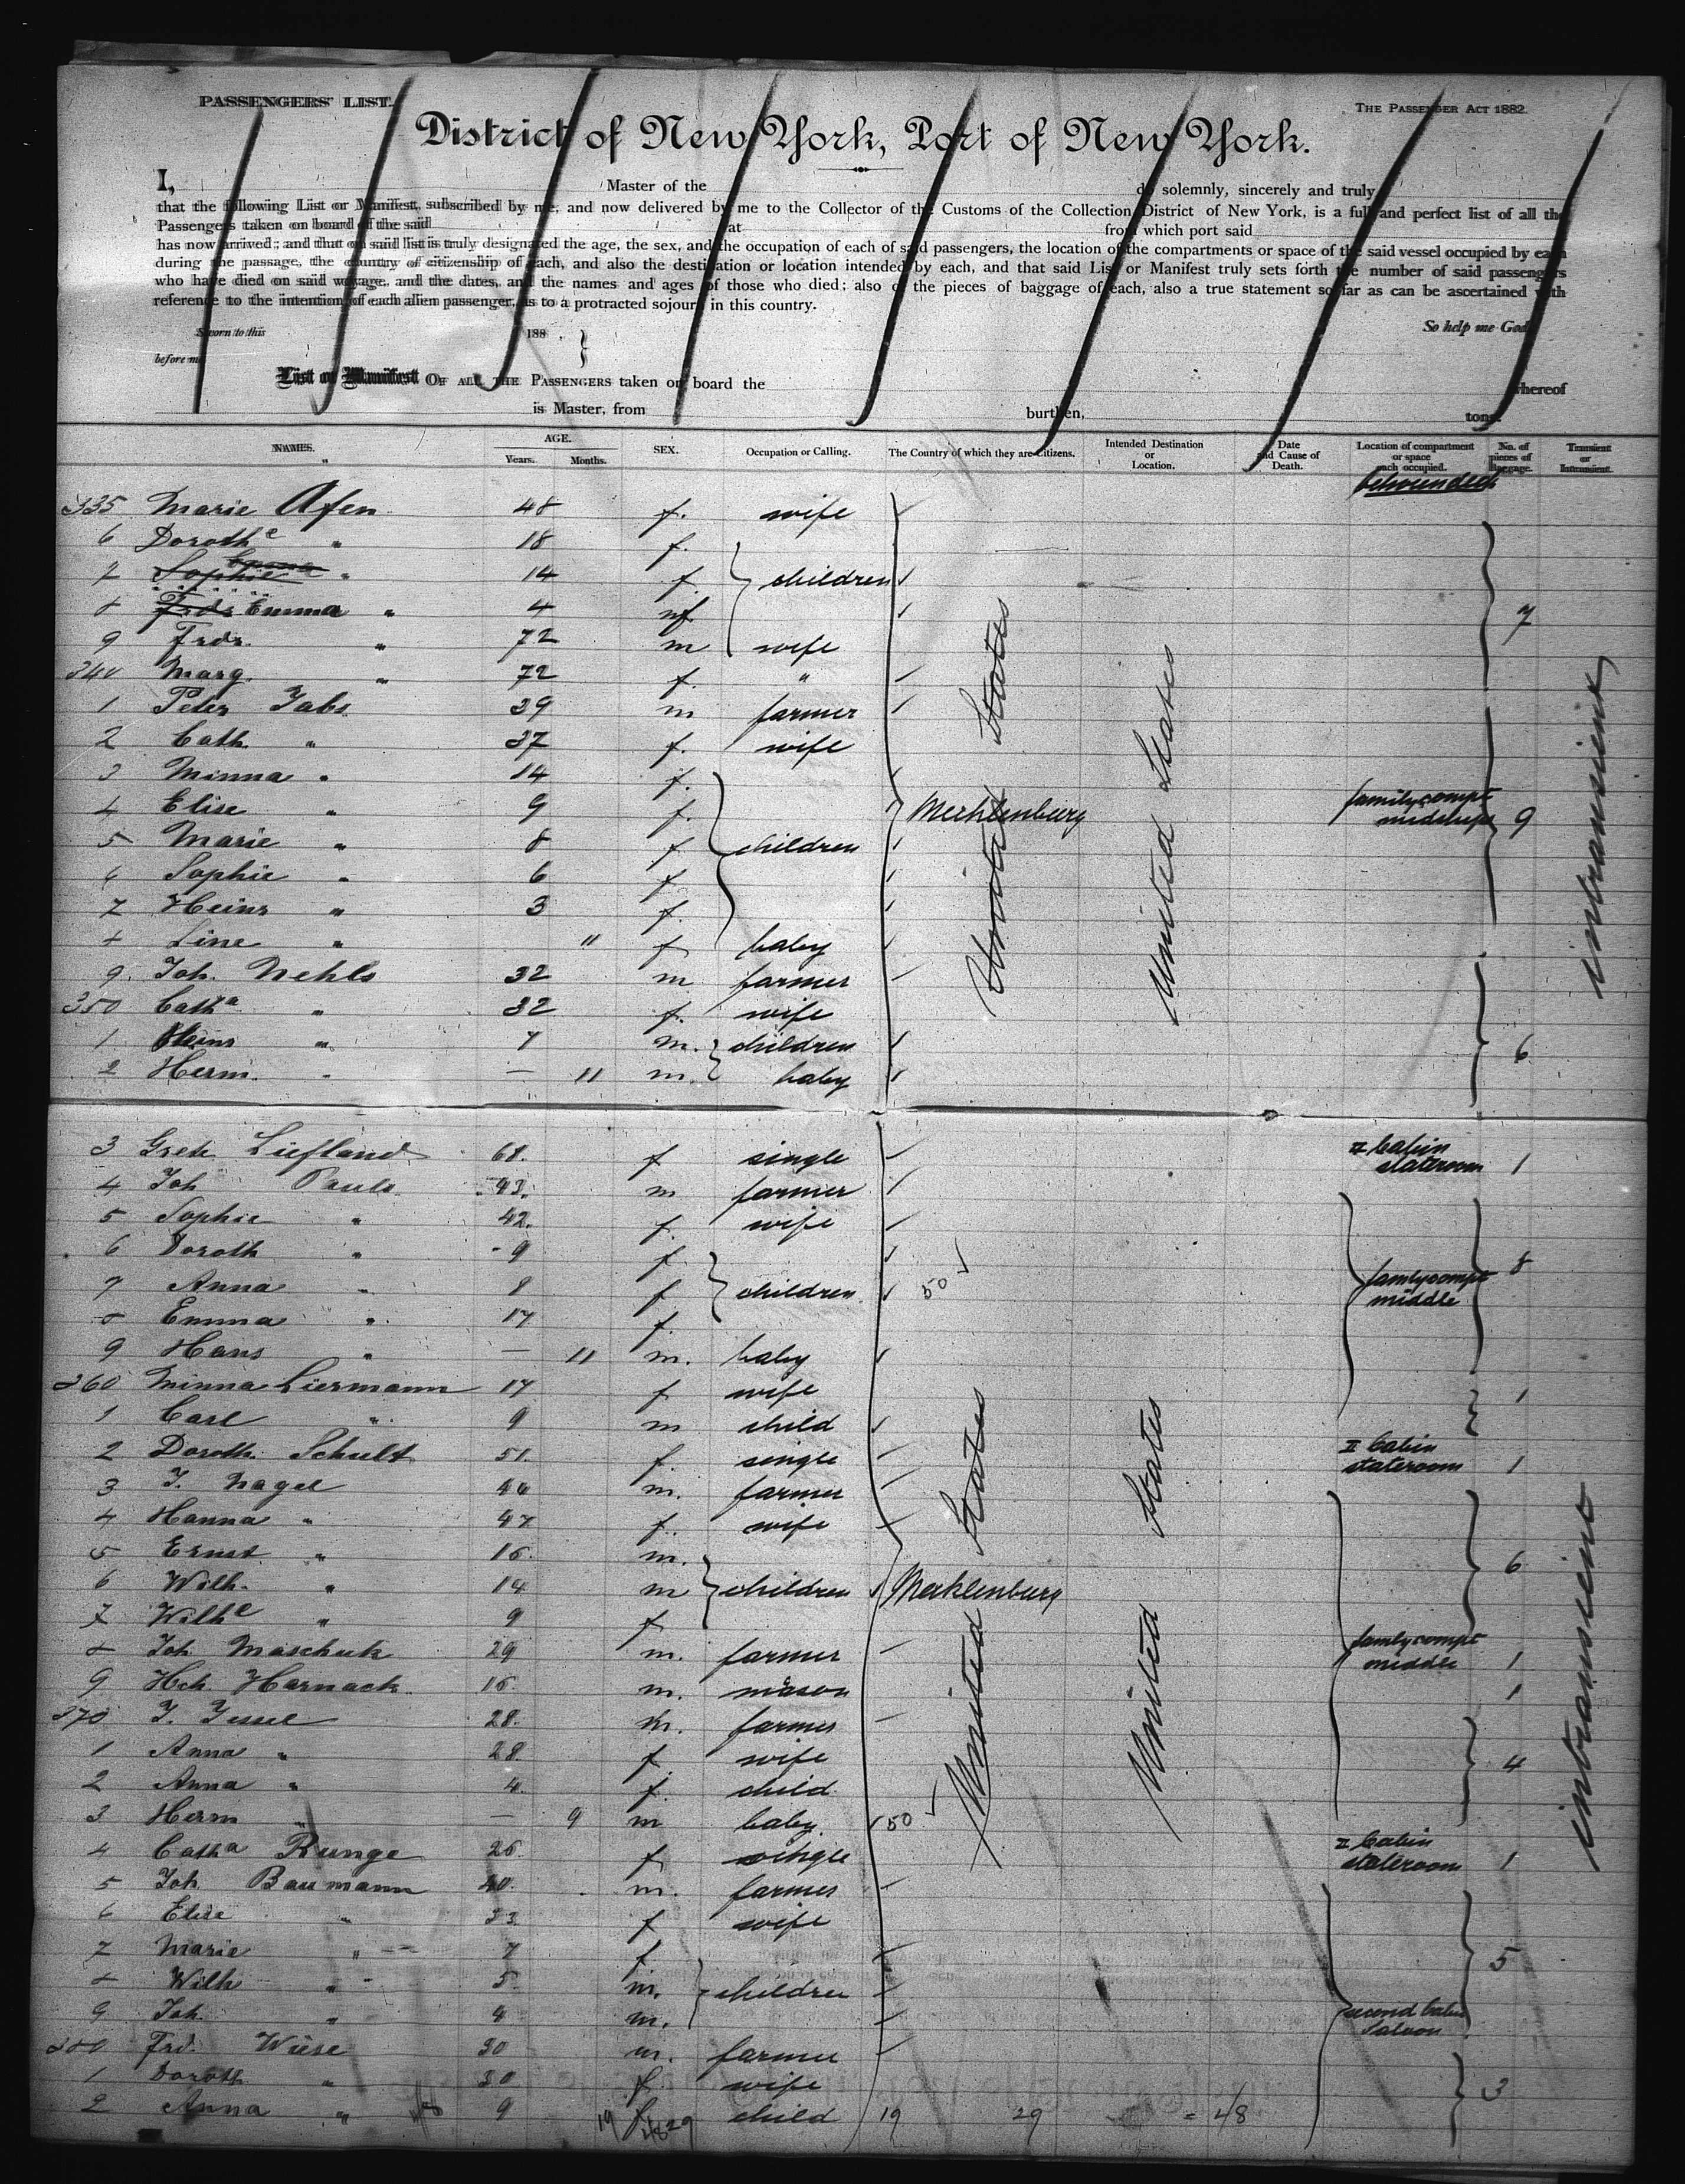 PASSENGERS' LIST.
THE PASSENGER ACT 1882.
District of New York, Port of New York.
I, Master of the do solemnly, sincerely and truly
that the following List or Manifest, subscribed by me, and now delivered by me to the Collector of the Customs of the Collection District of New York, is a full and perfect list of all the
Passengers taken on board of the said at from which port said
has now arrived; and that on said list is truly designated the age, the sex, and the occupation of each of said passengers, the location of the compartments or space of the said vessel occupied by each
during the passage, the country of citizenship of each, and also the destination or location intended by each, and that said List or Manifest truly sets forth the number of said passengers
who have died on said voyage, and the dates, and the names and ages of those who died; also of the pieces of baggage of each, also a true statement so far as can be ascertained with
reference to the intention of each alien passenger, as to a protracted sojourn in this country.
Sworn to this 188 . So help me God.
before me
List or Manifest OF ALL THE PASSENGERS taken on board the whereof
is Master, from burthen, tons.
NAMES. AGE. Years. Months. SEX. Occupation or Calling. The Country of which they are Citizens. Intended Destination or Location. Date and Cause of Death. Location of compartment or space each occupied. No. of pieces of Baggage. Transient or Intransient.
335 Marie Afen 48 f. wife
6 Doroth e " 18 f.
7 Sophie " 14 f. children
8 Emma " 4 f
9 Frdr. " 72 m wife 7
340 Marg. " 72 f. "
1 Peter Jabs 39 m farmer
2 Cath. " 37 f. wife
3 Minna " 14 f.
4 Elise " 9 f. Mecklenburg family compt midships 9
5 Marie " 8 f children
6 Sophie " 6 f
7 Heinr " 3 f.
8 Line " 11 f baby
9. Joh. Nehls 32 m farmer
350 Cath a " 32 f. wife
1 Heinr " 7 m. children 6
2 Herm. " — 11 m. baby
United States
United States
intransient
3 Greth Liefland 68. f single II Cabin stateroom 1
4 Joh Pauls 43. m farmer
5 Sophie " 42. f. wife
6 Doroth " 9 f
7 Anna " 8 f children 50 family compt middle 8
8 Emma " 17 f.
9 Hans " — 11 m. baby
360 Minna Liermann 17 f wife 1
1 Carl " 9 m child
2 Doroth. Schult 51. f. single II Cabin stateroom 1
3 J. Nagel 46 m. farmer
4 Hanna " 47 f. wife
5 Ernst " 16. m. 6
6 Wilh. " 14 m children Mecklenburg
7 Wilh e " 9 f
8 Joh. Maschuk 29 m. farmer family compt middle 1
9 Hch. Harnack 16. m. mason 1
370 J. Jessel 28. m. farmer
1 Anna " 28. f. wife 4
2 Anna " 4. f. child
3 Herm — 9 m baby 50
4 Cath a Runge 26. f single II Cabin stateroom 1
5 Joh. Baumann 40. m. farmer
6 Elise " 33 f wife
7 Marie " 7 f 5
8 Wilh " 5. m. children
9 Joh. " 4 m. second cabin Saloon
380 Frd. Wiese 30 m. farmer
1 Doroth " 30 f. wife 3
2 Anna " 9 f child 19 29 = 48
United States
United States
intransient